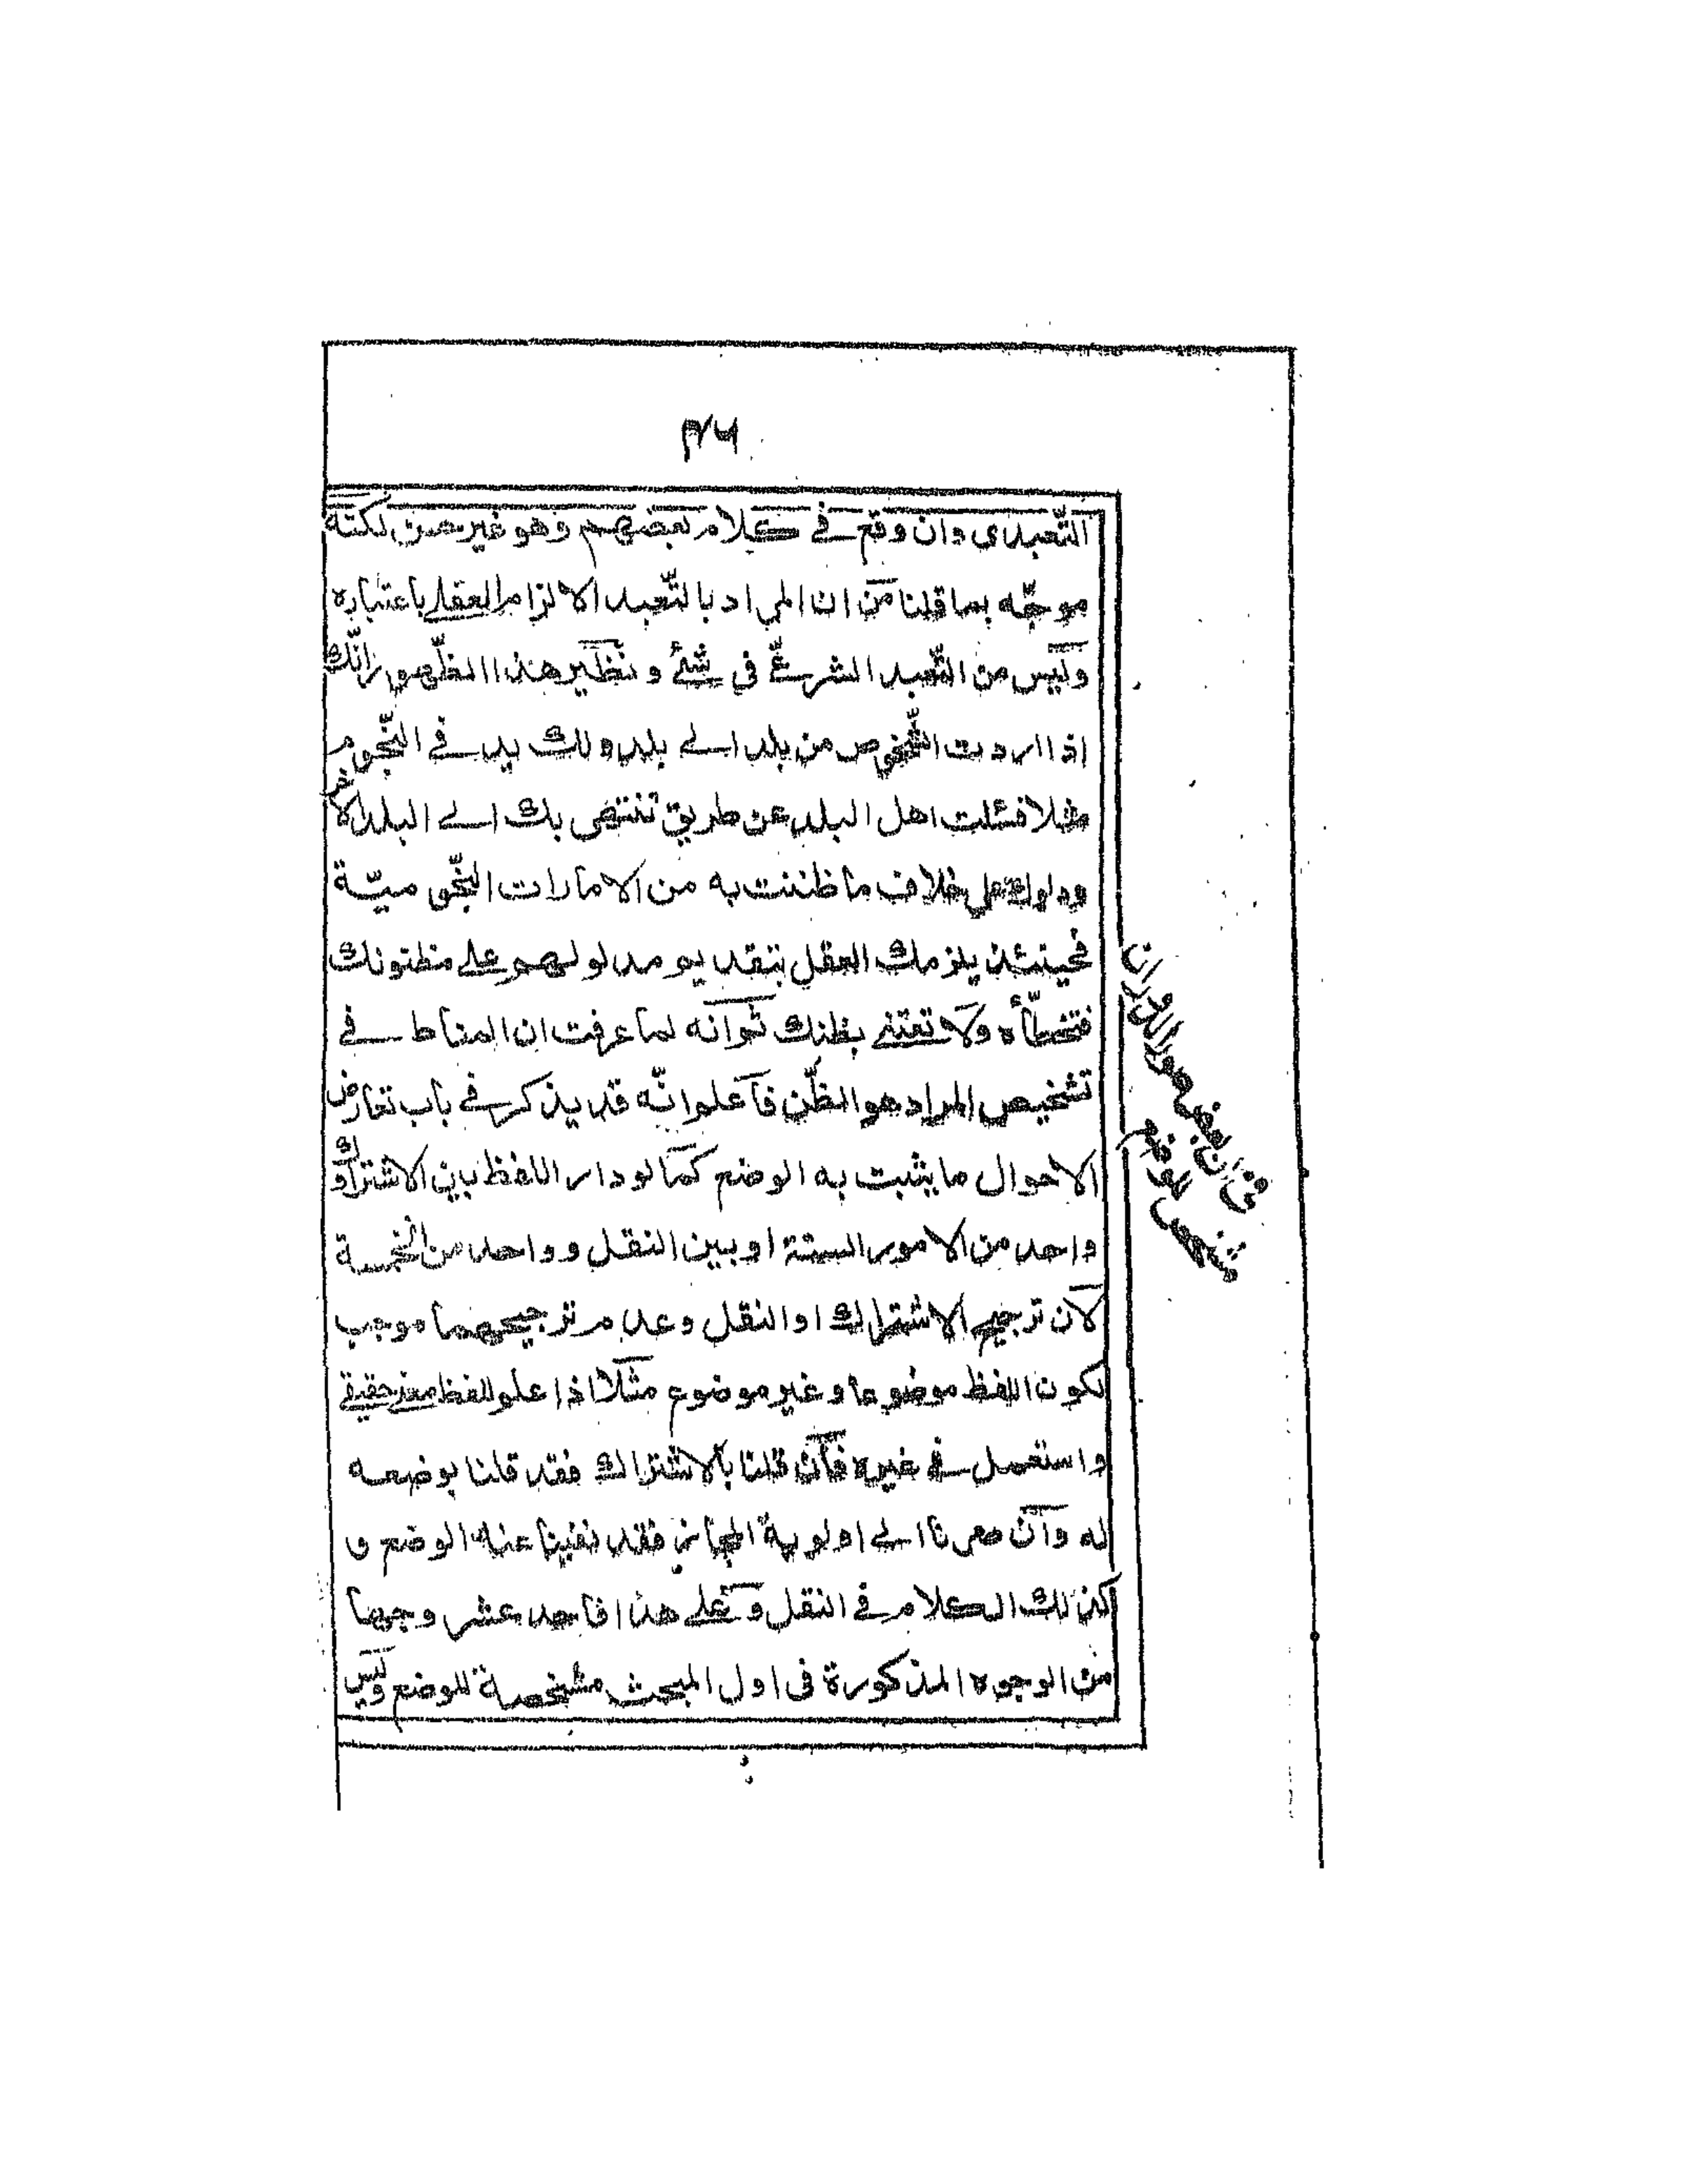 ٣٧٦
التّعبدى وان وقع فى كلام بعضهم وهو غير حسن لكنّه
موجّه بما قلنا من ان المراد بالتّعبد الالزام العقلى باعتباره
وليس من التّعبد الشرعىّ فى شئ ونظير هذا الظّهور انّك
اذا اردت الشّخوص من بلد الى بلد ولك يد فى النّجوم
مثلا فسئلت اهل البلد عن طريق تنتهى بك الى البلد الاخر
ودلوك على خلاف ما ظننت به من الامارات النّجوميّة
فحينئذ يلزمك العقل بتقديم مدلولهم على مظنونك
فتخطّأه ولا تعتنى بظنك ثم انه لما عرفت ان المناط فى
تشخيص المراد هو الظّن فاعلم انّه قد يذكر فى باب تعارض
الاحوال ما يثبت به الوضع كما لو دار اللفظ بين الاشتراك و
واحد من الامور الستة او بين النقل وواحد من الخمسة
لان ترجيح الاشتراك او النقل وعدم ترجيحهما موجب
لكون اللفظ موضوعا وغير موضوع مثلا اذا علم للفظ معنى حقيقى
واستعمل فى غيره فان قلنا بالاشتراك فقد قلنا بوضعه
له وان صرنا الى اولوية المجاز فقد نفينا عنه الوضع و
كذلك الكلام فى النقل وعلى هذا فاحد عشر وجها
من الوجوه المذكورة فى اول المبحث مشخصة للوضع وليس
فى ان بعض صور الدوران
مشخص للوضع